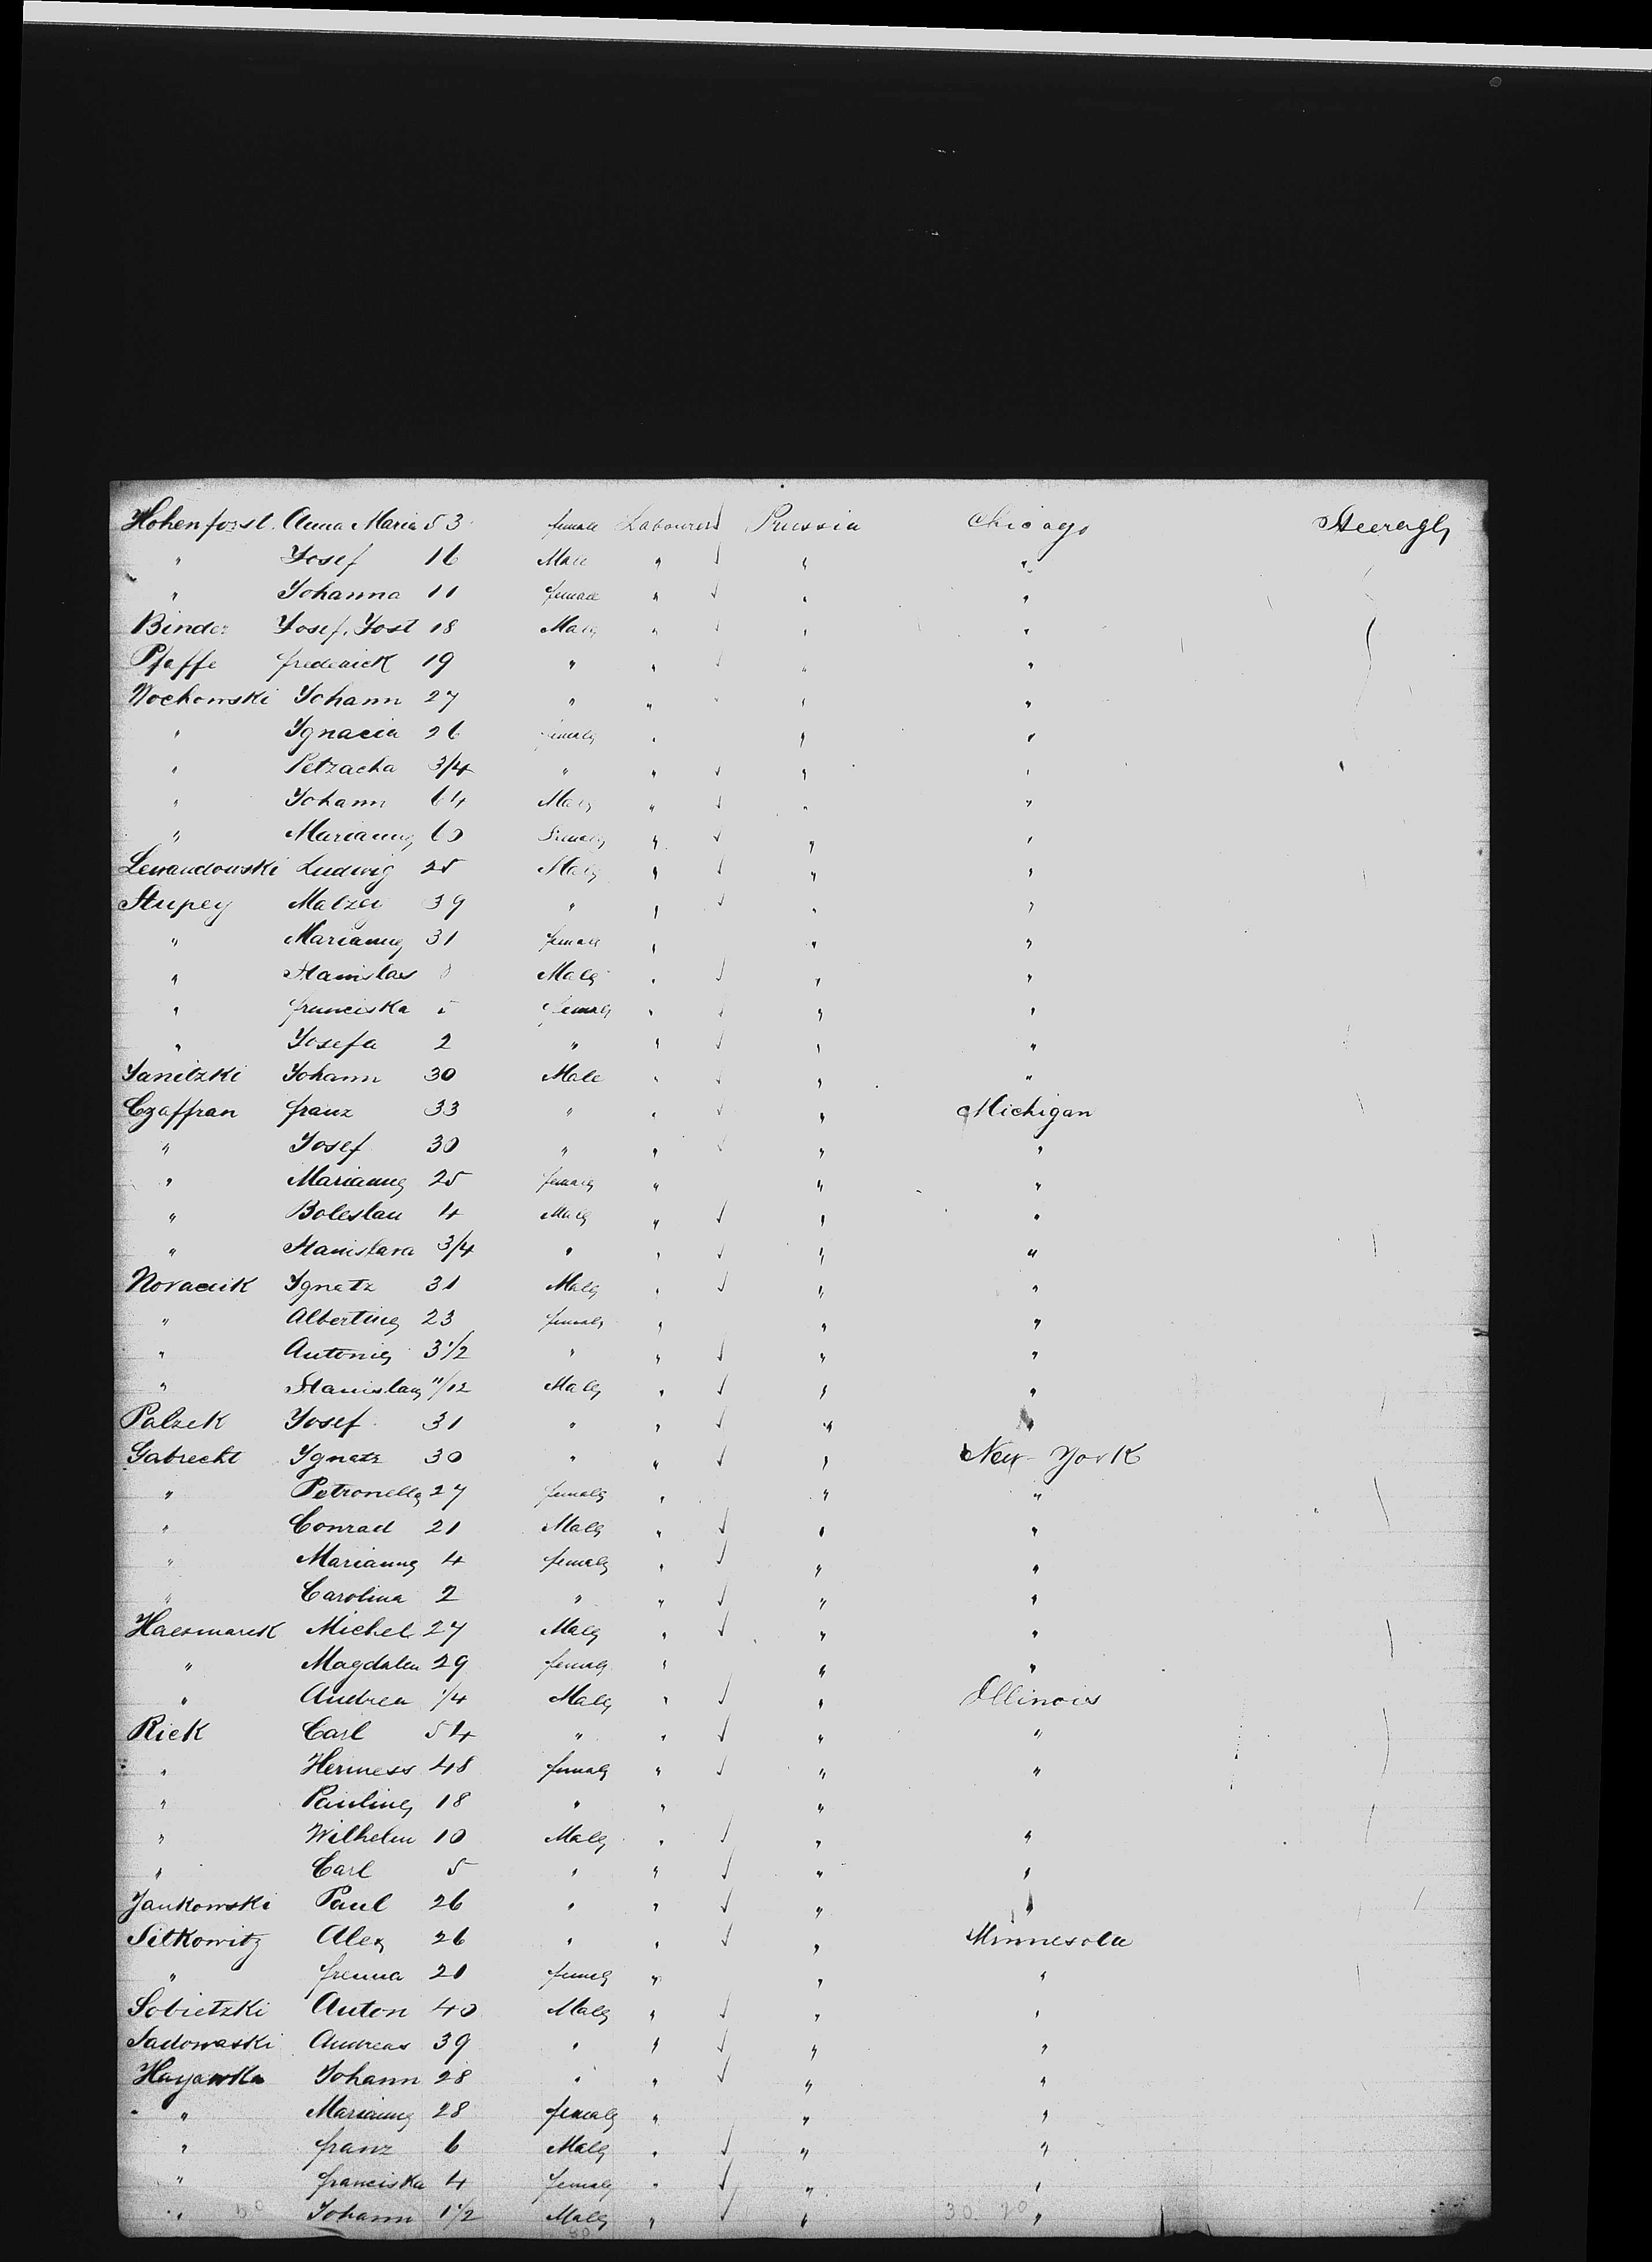 Hohenforst. Anna Maria 53 female Labourers Prussia Chicago Steerage
" Josef 16 Male " " "
" Johanna 11 female " " "
Binder Josef. Jost 18 Male " " "
Pfaffe frederick 19 " " " "
Nochowski Johann 27 " " " "
" Ignacia 26 female " " "
" Petzacha 3/4 " " " "
" Johann 64 Male " " "
" Marianne 60 female " " "
Lewandowski Ludwig 25 Male " " "
Stupey Matzei 39 " " " "
" Marianne 31 female " " "
" Stanislas 8 Male " " "
" franciska 5 female " " "
" Josefa 2 " " " "
Janitzki Johann 30 Male " " "
Czaffran franz 33 " " " Michigan
" Josef 30 " " " "
" Marianne 25 female " " "
" Boleslau 4 Male " " "
" Stanislava 3/4 " " " "
Novacik Ignatz 31 Male " " "
" Albertine 23 female " " "
" Antonie 3 1/2 " " " "
" Stanislaus 11/12 Male " " "
Palzek Josef 31 " " " "
Gabrecht Ignatz 30 " " " New-York
" Petronella 27 female " " "
" Conrad 21 Male " " "
" Marianne 4 female " " "
" Carolina 2 " " " "
Haesmarek Michel 27 Male " " "
" Magdalen 29 female " " "
" Andrea 1/4 Male " " Illinois
Riek Carl 54 " " " "
" Hermess 48 female " " "
" Pauline 18 " " "
" Wilhelm 10 Male " " "
" Carl 5 " " " "
Jankowski Paul 26 " " " "
Sitkowitz Alex 26 " " " Minnesota
" frenna 20 female " " "
Sobietzki Anton 40 Male " " "
Sadowaski Andreas 39 " " " "
Hayawka Johann 28 " " " "
" Marianne 28 female " " "
" franz 6 Male " " "
" franciska 4 female " " "
" 50 Johann 1 1/2 Male " " 30. 20 "